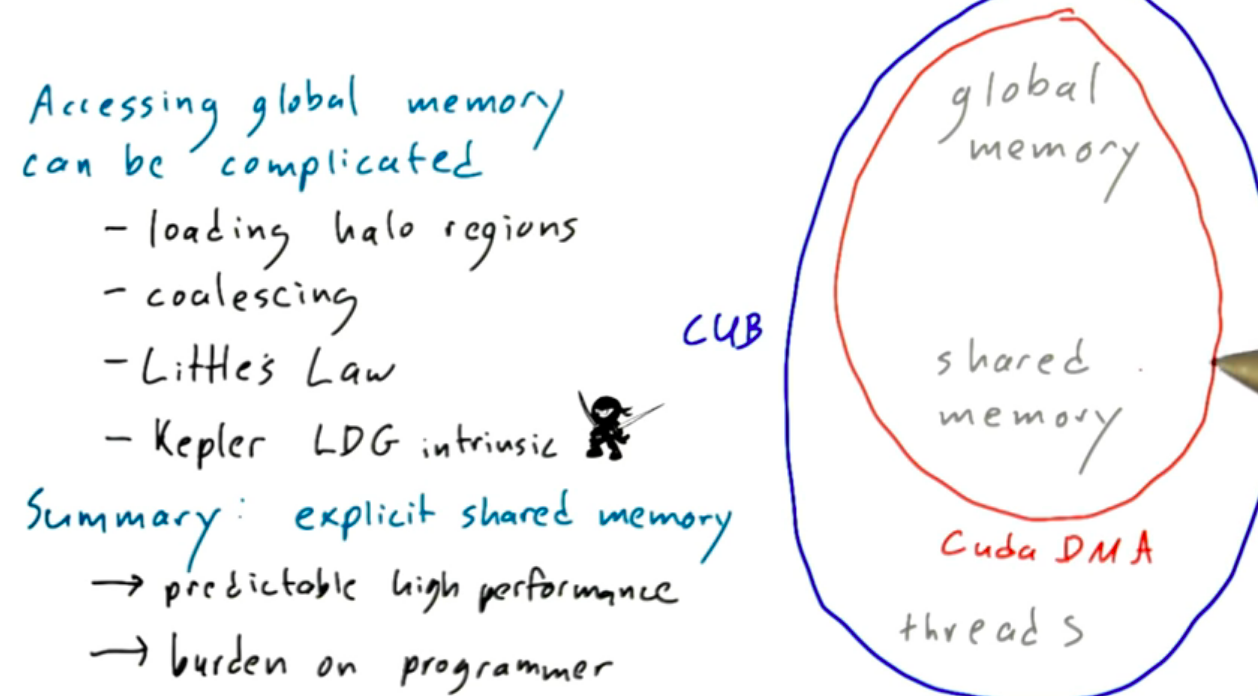 Accessing global memory
can be complicated
- loading halo regions
- coalescing
- Little's Law
- Kepler LDG intrinsic
Summary: explicit shared memory
→ predictable high performance
→ burden on programmer
global
memory
CUB
shared
memory
Cuda DMA
threads